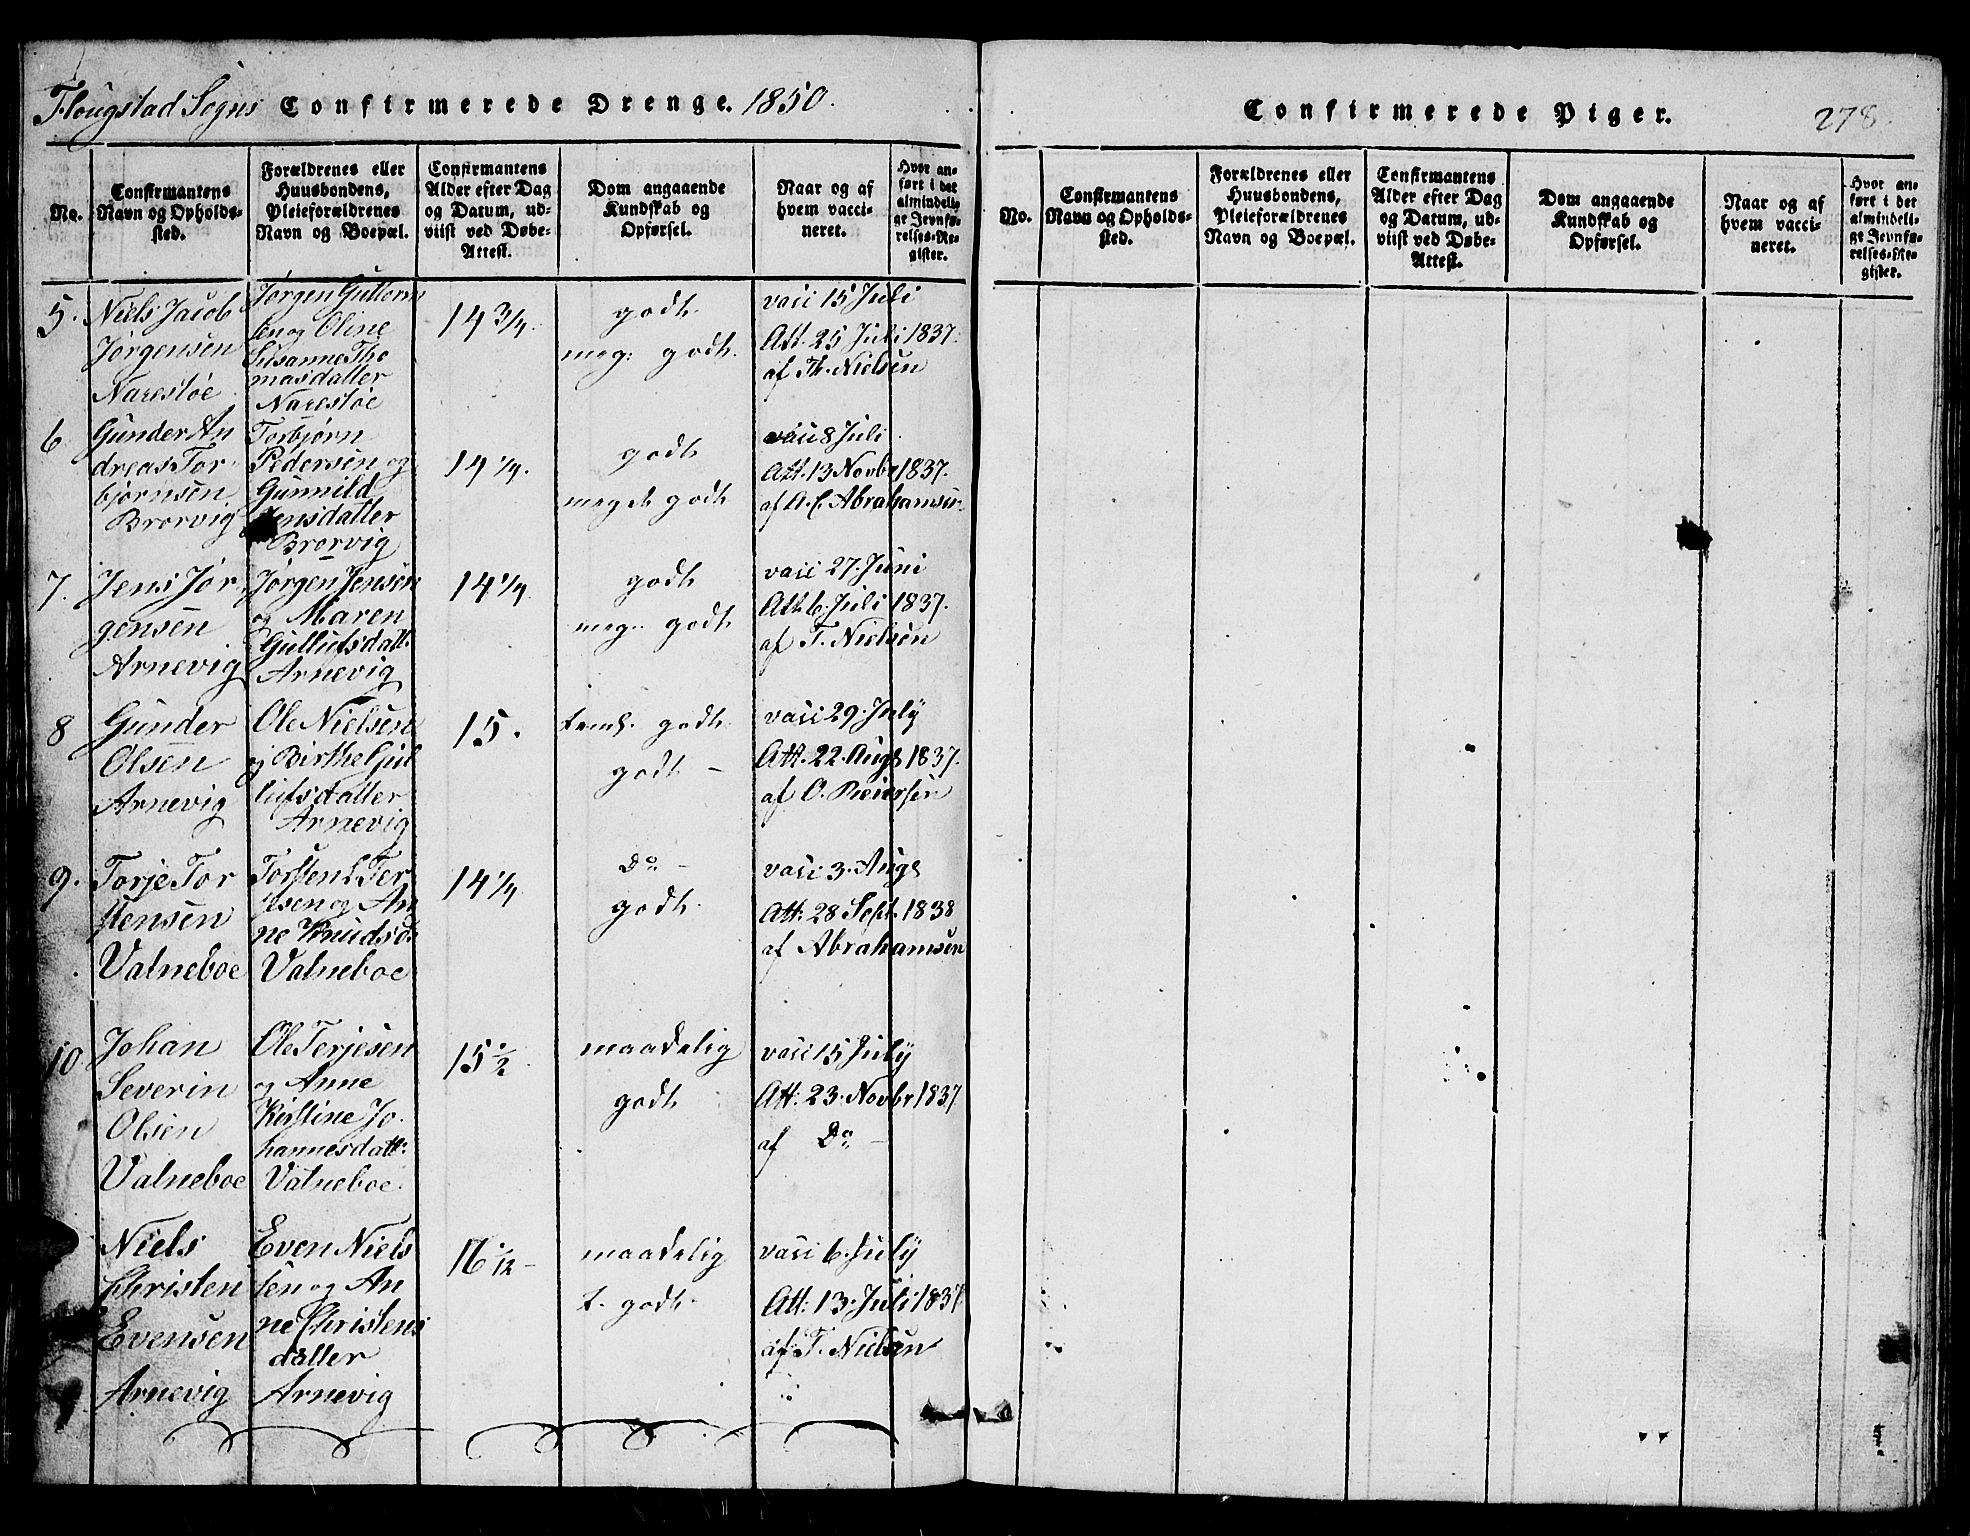 Flougstad Sogns Confirmerede Drenge. 1850.
No.
Confirmantens
Navn og Opholds-
sted.
Forældrenes eller
Huusbondens,
Pleieforældrenes
Navn og Boepæl.
Confirmantens
Alder efter Dag
og Datum, ud-
viist ved Døbe-
Attest.
Dom angaaende
Kundskab og
Opførsel.
Naar og af
hvem vacci-
neret.
Hvor an-
ført i det
almindeli-
ge Jevnfø-
relses-Re-
gister.
5.
Niels Jacob
Jørgensen
Narestøe
Jørgen Guttorm
sen og Oline
Susanne Tho
masdatter
Narestøe
14 3/4.
godt
meg: godt.
vacc 15 Juli
Att. 25 Juli 1837.
af Th. Nielsen
6.
Gunder An
dreas Tor-
bjørnsen
Brorvig
Torbjørn
Pedersen og
Gunnild
Jensdatter
Brorvig
14 1/4.
godt
meget godt
vacc 8 Juli
Att. 13 Novbr 1837.
af A. C. Abrahamsen
7.
Jens Jør-
gensen
Arnevig
Jørgen Jensen
og Maren
Gullufsdatt.
Arnevig
14 1/4.
godt
meg. godt
vacc 27. Juni
Att. 6. Juli 1837.
af T. Nielsen
8
Gunder
Olsen
Arnevig
Ole Nielsen
og Birthe Gul
lufsdatter
Arnevig
15.
teml. godt.
godt –
vacc 29. July
Att. 22. Augs 1837.
af O. Reiersen
9.
Torje Tor
stensen
Valneboe
Torsten Ter
jesen og An
ne Knudsd.
Valneboe
14 1/4
Do –
godt.
vacc 3. Augs
Att: 28 Sept. 1838
af Abrahamsen
10
Johan
Severin
Olsen
Valneboe
Ole Terjesen
og Anne
Kirstine Jo-
hannesdatt:
Valneboe.
15 1/2
maadelig
godt
vacc 15 July
Att: 23. Novbr 1837
af Do –
Niels
Christen
Evensen
Arnevig
Even Niels
sen og An
ne Christens
datter
Arnevig
16 1/12 –
maadelig
t. godt.
vacc 6. July
Att: 13. Juli 1837.
af T. Nielsen
Confirmerede Piger. 278.
No.
Confirmantens
Navn og Opholds-
sted.
Forældrenes eller
Huusbondens,
Pleieforældrenes
Navn og Boepæl.
Confirmantens
Alder efter Dag
og Datum, ud-
viist ved Døbe-
Attest.
Dom angaaende
Kundskab og
Opførsel.
Naar og af
hvem vacci-
neret.
Hvor an-
ført i det
almindeli-
ge Jevnfø-
relses-Re-
gister.